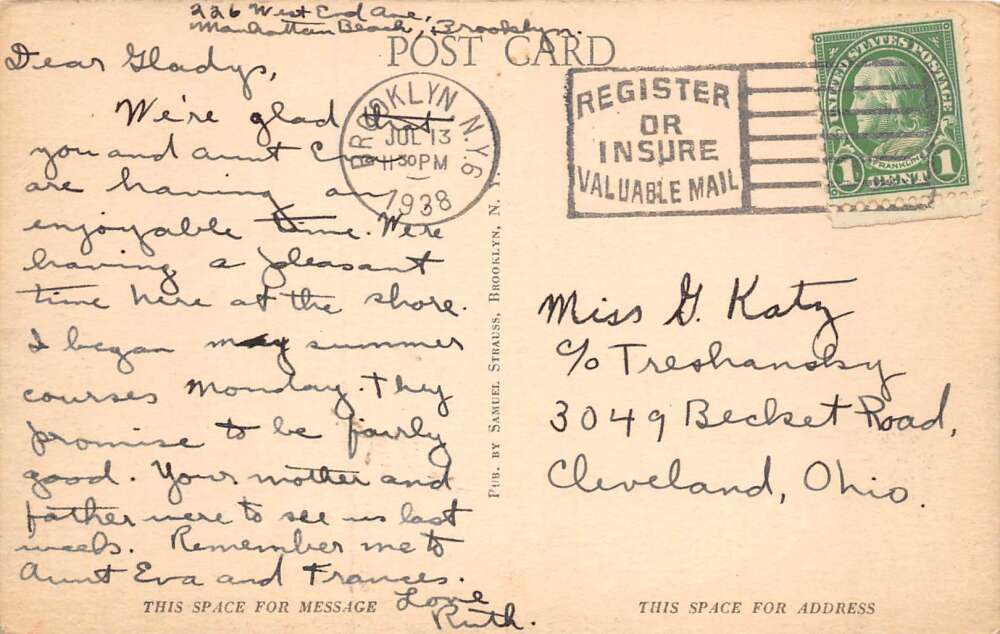 226 West End Ave,
Manhattan Beach, Brooklyn.
POST CARD
Dear Gladys,
We're glad that
you and aunt
are having an
enjoyable time. We're
having a pleasant
time here at the shore.
I began my summer
courses Monday. They
promise to be fairly
good. Your mother and
father were to see us last
week. Remember me to
Aunt Eva and Frances.
Love
Ruth.
THIS SPACE FOR MESSAGE
PUB. BY SAMUEL STRAUSS, BROOKLYN, N. Y.
BROOKLYN N.Y. 6
JUL 13
11 30 PM
1938
REGISTER
OR
INSURE
VALUABLE MAIL
UNITED STATES POSTAGE
FRANKLIN
1 CENT 1
Miss G. Katz
c/o Treshansky
3049 Becket Road,
Cleveland, Ohio.
THIS SPACE FOR ADDRESS